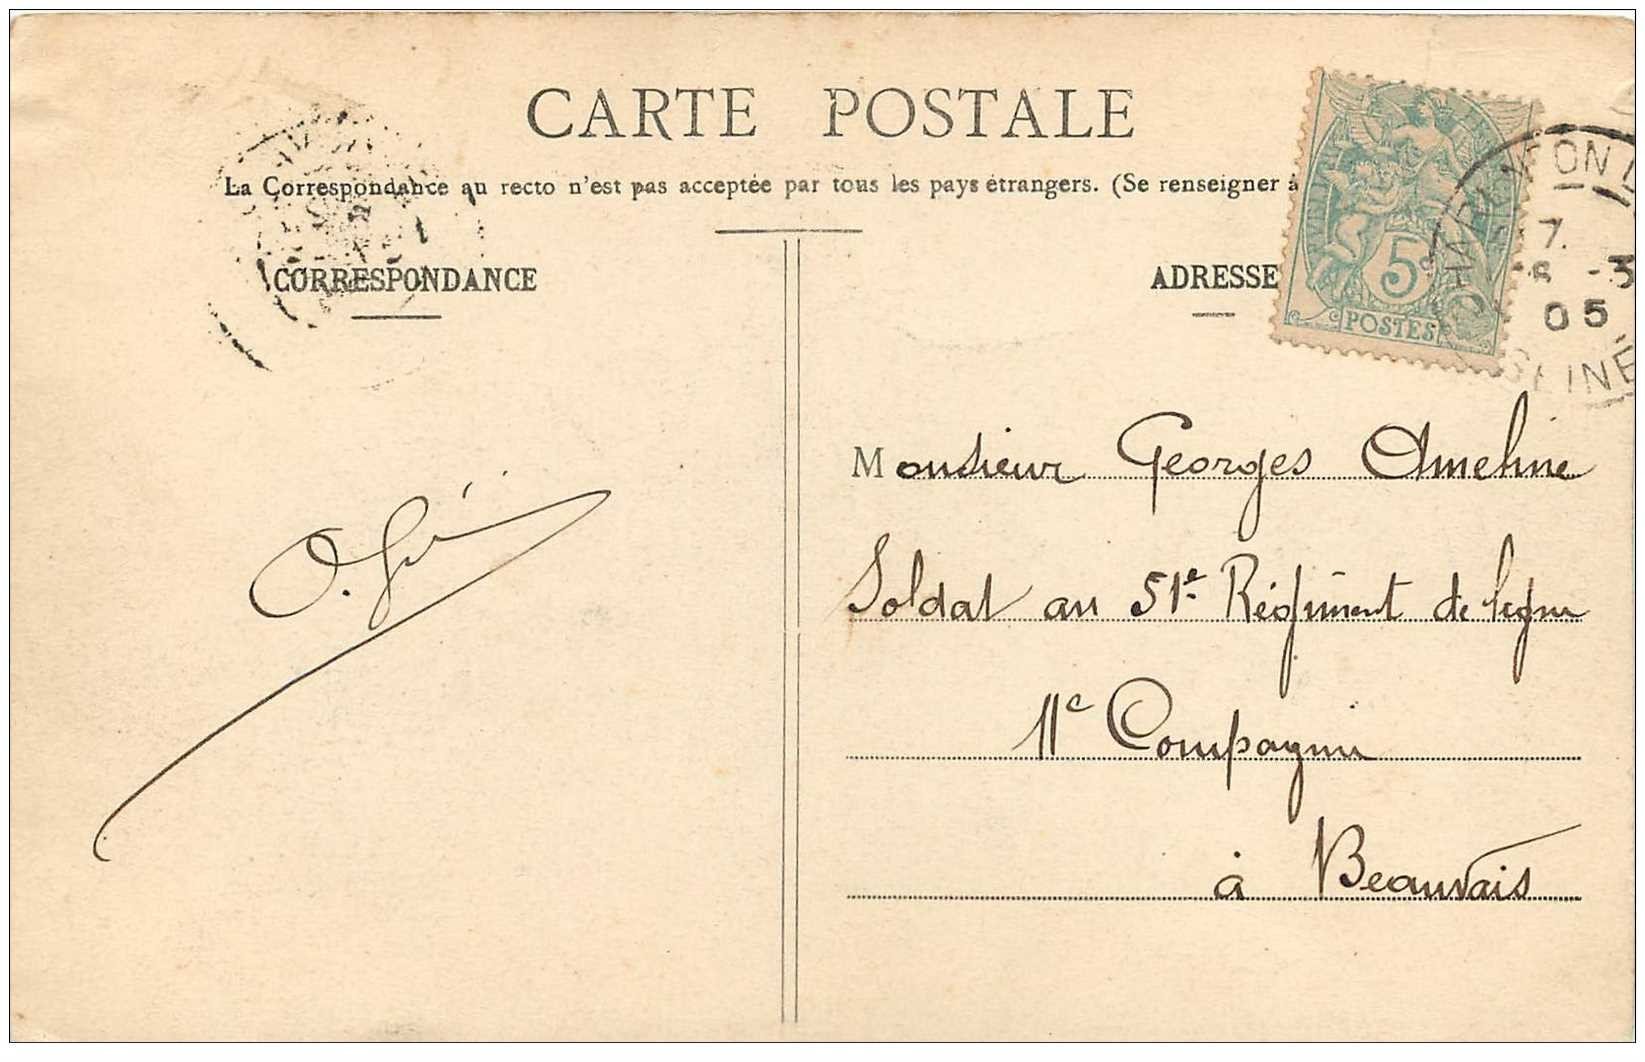 CARTE POSTALE
La Correspondance au recto n'est pas acceptée par tous les pays étrangers. (Se renseigner à
CORRESPONDANCE
ADRESSE
5c
POSTES
CHARENTON
7
6 - 3
05
SEINE
Monsieur Georges Ameline
Soldat au 51e Régiment de ligne
11e Compagnie
à Beauvais